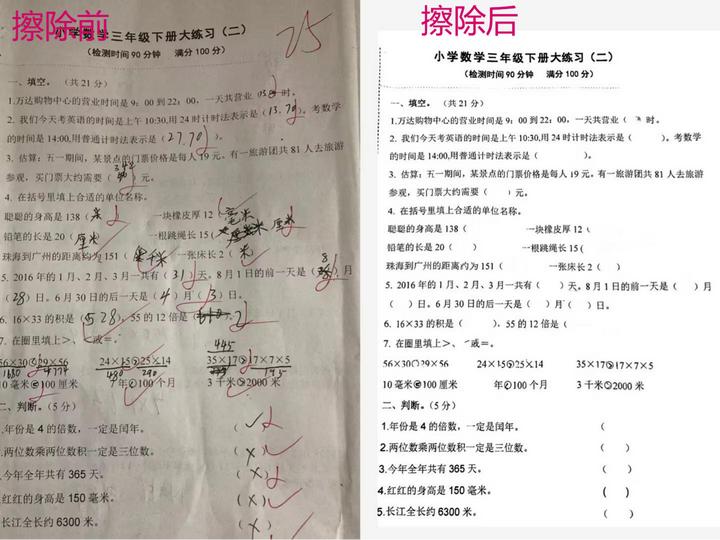 擦除前
小学数学三年级下册大练习（二）
25
（检测时间90分钟 满分100分）
一、填空。（共21分）
1.万达购物中心的营业时间是9：00到22：00，一天共营业（ 时。
2. 我们今天考英语的时间是上午10:30,用24时计时法表示是（13.70）。考数学
的时间是14:00,用普通计时法表示是（27.70）。
3. 估算：五一期间，某景点的门票价格是每人19元。有一旅游团共81人去旅游
参观，买门票大约需要（ ）元。
4. 在括号里填上合适的单位名称。
聪聪的身高是138（米 一块橡皮厚12（毫米
铅笔的长是20（厘米 一根跳绳长15（ 厘米
珠海到广州的距离约为151（ 千米 一张床长2（米）
5. 2016年的1月、2月、3月一共有（31）天。8月1日的前一天是（8）月
（28）日。6月30日的后一天是（4）月（3）日。
6. 16×33的积是（528），55的12倍是（ ）
7. 在圆里填上>、<或=。
56×30 29×56 24×15 25×14 35×17 17×7×5
1680 4774 480 290 445 195
10毫米 100厘米 年 100个月 3千米 2000米
二、判断。（5分）
1.年份是4的倍数，一定是闰年。（✓
2.两位数乘两位数积一定是三位数。（×）
3.今年全年共有365天。（×）
4.红红的身高是150毫米。（×）
5.长江全长约6300米。（×）
擦除后
小学数学三年级下册大练习（二）
（检测时间90分钟 满分100分）
一、填空。（共21分）
1.万达购物中心的营业时间是9：00到22：00，一天共营业（ 时。
2. 我们今天考英语的时间是上午10:30,用24时计时法表示是（ ）。考数学
的时间是14:00,用普通计时法表示是（ ）。
3. 估算：五一期间，某景点的门票价格是每人19元。有一旅游团共81人去旅游
参观，买门票大约需要（ ）元。
4. 在括号里填上合适的单位名称。
聪聪的身高是138（ 一块橡皮厚12（
铅笔的长是20（ ） 一根跳绳长15（
珠海到广州的距离约为151（ 一张床长2（ ）
5. 2016年的1月、2月、3月一共有（ ）天。8月1日的前一天是（ ）月
（ ）日。6月30日的后一天是（ ）月（ ）日。
6. 16×33的积是（ ），55的12倍是（ ）
7. 在圆里填上>、<或=。
56×30 29×56 24×15 25×14 35×17 17×7×5
10毫米 100厘米 年 100个月 3千米 2000米
二、判断。（5分）
1.年份是4的倍数，一定是闰年。（
2.两位数乘两位数积一定是三位数。（ ）
3.今年全年共有365天。（ ）
4.红红的身高是150毫米。（ ）
5.长江全长约6300米。（ ）